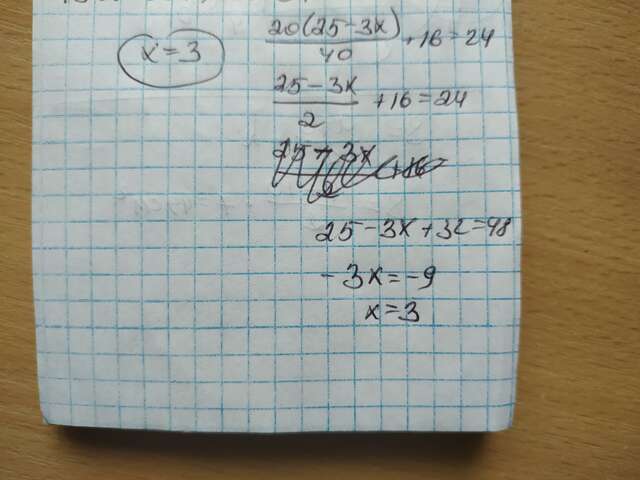 20(25-3x)/40 + 16 = 24
x = 3
25-3x/2 + 16 = 24
25-3x+32=48
-3x=-9
x=3